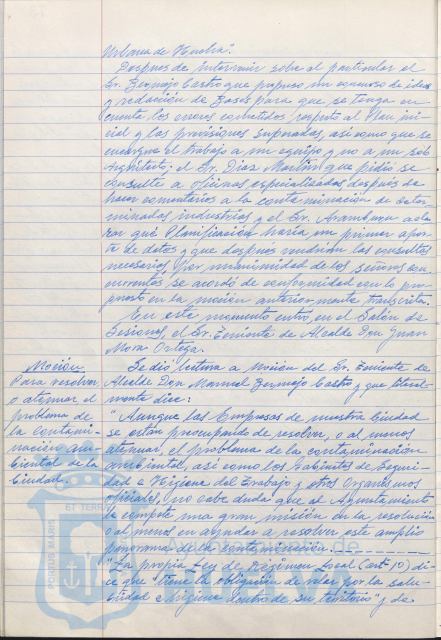 Urbana de Huelva".
Despues de intervenir sobre el particular el
Sr. Bermejo Castro que propuso un concurso de ideas
y redacción de Bases para que se tenga en
cuenta los errores cometidos respecto al Plan ini-
cial y las previsiones superadas, así como que se
encargue el trabajo a un equipo y no a un solo
Arquitecto; el Sr. Diaz Martin que pidió se
consulte a oficinas especializadas despues de
hacer comentarios a la contaminación de deter-
minadas industrias y el Sr. Aramburu acla-
rar que Planificación haría un primer apor-
te de datos y que después vendrian las consultas
necesarias, por unanimidad de los señores con-
currentes se acordó de conformidad con lo pro-
puesto en la moción anteriormente transcrita.
En este momento entro en el Salón de
Sesiones, el Sr. Teniente de Alcalde Don Juan
Mora Ortega.
Moción
Para resolver
o atenuar el
problema de
la contami-
nación am-
biental de la
Ciudad.
Se dio lectura a Moción del Sr. Teniente de
Alcalde Don Manuel Bermejo Castro y que literal-
mente dice:
"Aunque las Empresas de nuestra Ciudad
se estan preocupando de resolver, o al menos
atenuar, el problema de la contaminación
ambiental, así como los Gabinetes de Seguri-
dad e Higiene del Trabajo y otros Organismos
oficiales, no cabe duda que al Ayuntamiento
le compete una gran misión en la resolución
o al menos en ayudar a resolver este amplio
panorama de la contaminación.
"La propia Ley de Régimen Local (art. 10) di-
ce que "tiene la obligación de velar por la salu-
bridad e higiene dentro de su territorio" y de
PORTUS MARIS
ET TERRAE